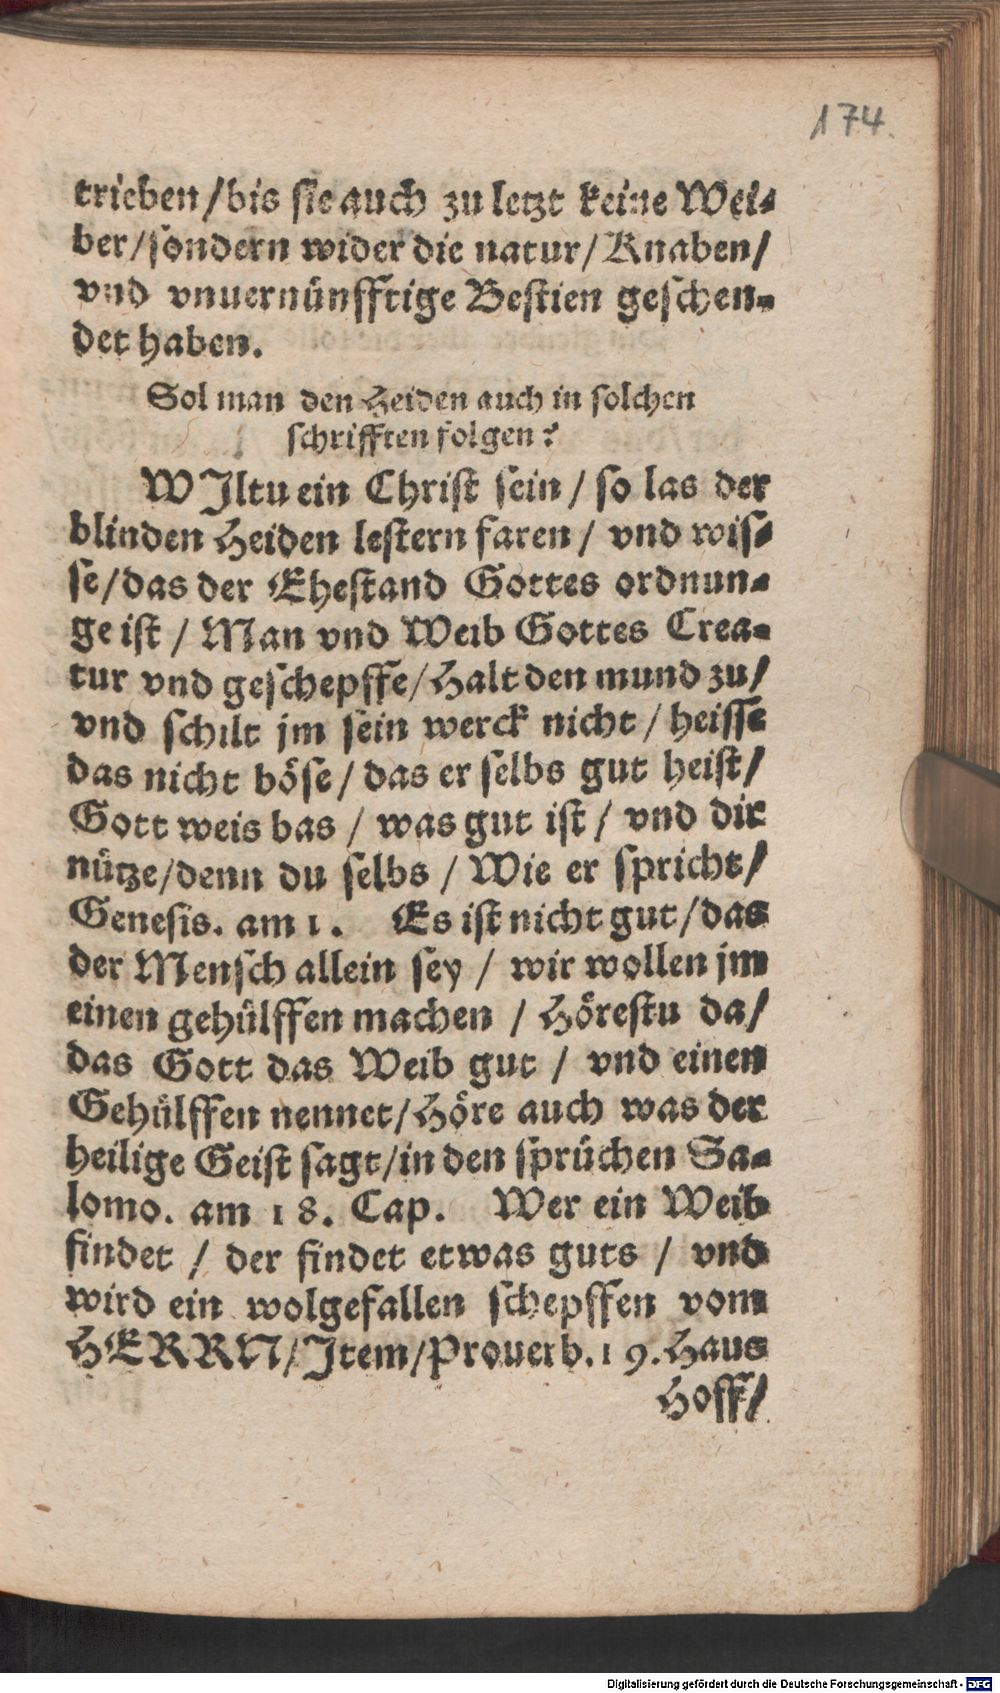 174.
trieben / bis sie auch zu letzt keine Wei-
ber / sondern wider die natur / Knaben /
vnd vnuernünfftige Bestien geschen-
det haben.
Sol man den Heiden auch in solchen
schrifften folgen?
WJltu ein Christ sein / so las der
blinden Heiden lestern faren / vnd wis-
se / das der Ehestand Gottes ordnun-
ge ist / Man vnd Weib Gottes Crea-
tur vnd geschepffe / Halt den mund zu /
vnd schilt jm sein werck nicht / heisse
das nicht böse / das er selbs gut heist /
Gott weis bas / was gut ist / vnd dir
nütze / denn du selbs / Wie er spricht /
Genesis. am 1. Es ist nicht gut / das
der Mensch allein sey / wir wollen jm
einen gehülffen machen / Hörestu da /
das Gott das Weib gut / vnd einen
Gehülffen nennet / Höre auch was der
heilige Geist sagt / in den sprüchen Sa-
lomo. am 18. Cap. Wer ein Weib
findet / der findet etwas guts / vnd
wird ein wolgefallen schepffen vom
HERRN / Item / Prouerb. 19. Haus
Hoff /
Digitalisierung gefördert durch die Deutsche Forschungsgemeinschaft - DFG